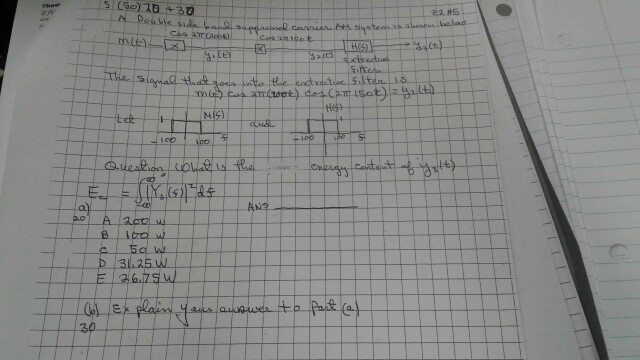 5 (50) 20 + 30
22 #5
A Double side band suppressed carrier AM system is shown below
cos 2π(200t) cos 2π150t
m(t) → X → X → H(f) → y3(t)
y1(t) y2(t) Extractive
filter
The signal that goes into the extractive filter is
m(t) cos 2π(200t) cos(2π150t) = y2(t)
Let 1 M(f) and 1 H(f)
-100 100 f -100 100 f
Question What is the energy content of y3(t)
E = ∫|Y3(f)|² df
∞
-∞
a)
20
ANS
A 200 W
B 100 W
C 50 W
D 31.25 W
E 26.75 W
(b) Explain your answer to part (a)
30